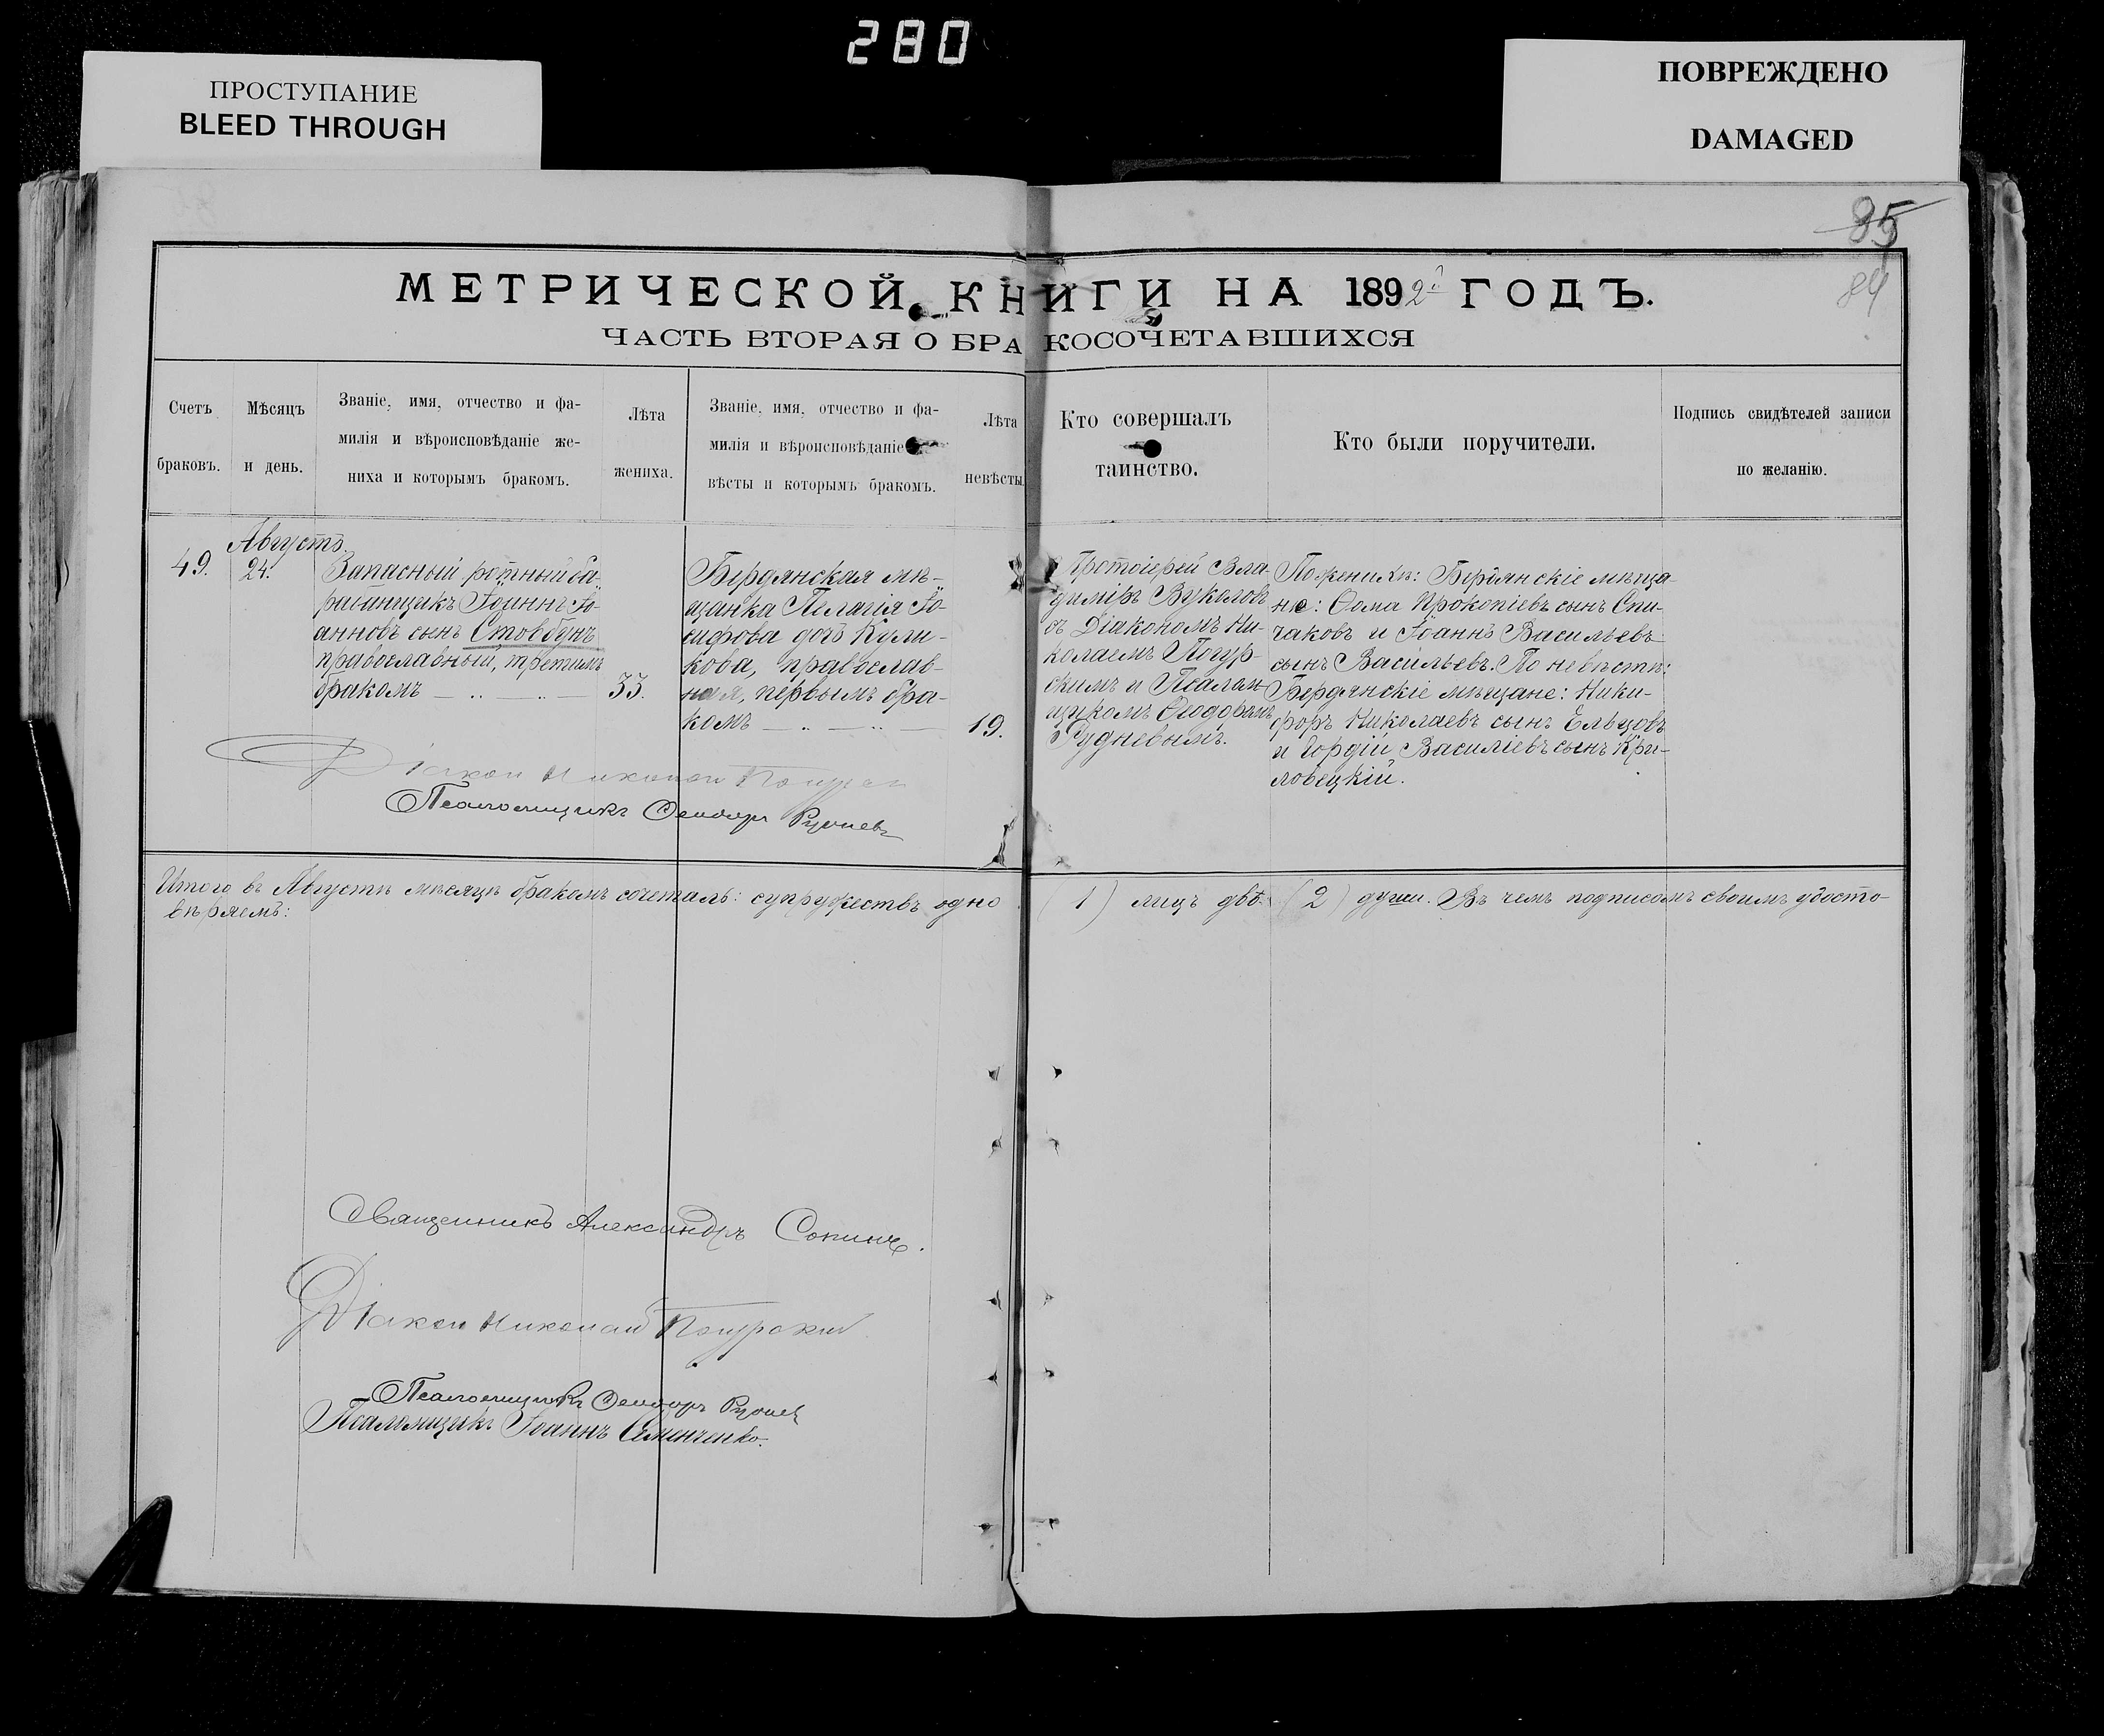 280
ПРОСТУПАНИЕ
BLEED THROUGH
ПОВРЕЖДЕНО
DAMAGED
85
84
МЕТРИЧЕСКОЙ КНИГИ НА 1892й ГОДЪ.
ЧАСТЬ ВТОРАЯ О БРАКОСОЧЕТАВШИХСЯ
Счетъ
браковъ.
Мѣсяцъ
и день.
Званіе, имя, отчество и фа-
милія и вѣроисповѣданіе же-
ниха и которымъ бракомъ.
Лѣта
жениха.
Званіе, имя, отчество и фа-
милія и вѣроисповѣданіе
вѣсты и которымъ бракомъ.
Лѣта
невѣсты.
Кто совершалъ
таинство.
Кто были поручители.
Подпись свидѣтелей записи
по желанію.
49.
Августъ.
24.
Запасный ротный ба-
рабанщикъ Іоаннъ Іо-
анновъ сынъ Стовбунъ
православный, третимъ
бракомъ — .. — .. —
33.
Бердянская мѣ-
щанка Пелагія Іо-
сифова дочь Кули-
кова, православ-
ная, первымъ бра-
комъ — .. — .. —
19.
Протоіерей Вла-
димірь Вуколовъ
съ Діакономъ Ни-
колаемъ Погур-
скимъ и Псалом-
щикомъ Ѳеодоромъ
Рудневымъ.
По женихѣ: Бердянскіе мѣща-
не: Ѳома Прокопіевъ сынъ Спи-
чаковъ и Іоаннъ Васильевъ
сынъ Васильевъ. По невѣстѣ:
Бердянскіе мѣщане: Ники-
форъ Николаевъ сынъ Ельцовъ
и Гордій Василіевъ сынъ Кри-
ловецкій.
Діакон Николай Погурски
Псаломщикъ Ѳеодоръ Рудневъ
Итого въ Августѣ мѣсяцѣ бракомъ сочеталъ: супружествъ одно (1) лицъ двѣ (2) души. Въ чемъ подписомъ своимъ удосто-
вѣряемъ:
Священникъ Александръ Сопинъ.
Діакон Николай Погурский
Псаломщикъ Ѳеодоръ Руднев
Псаломщикъ Іоаннъ Семенченко.